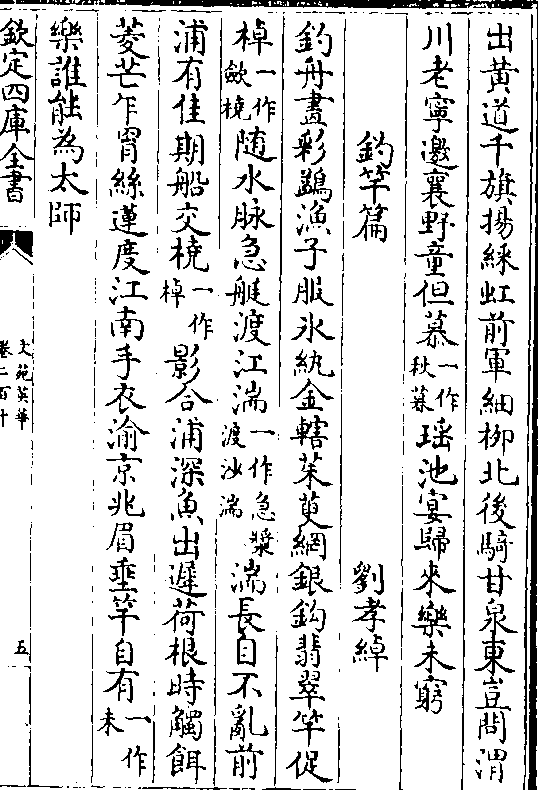 出黄道千旗揚綵虹前軍細栁北後騎甘泉東豈問渭
川老寧邀襄野童但慕一作秋暮瑶池宴歸來樂未窮
釣竿篇
劉孝綽
釣舟畫彩鷁漁子服氷紈金轄茱萸網銀鈎翡翠竿促
棹一作歛橈随水脉急艇渡江湍一作急槳渡沙湍湍長自不亂前
浦有佳期船交橈一作棹影合浦深魚出遲荷根時觸餌
菱芒乍罥絲蓮度江南手衣渝京兆眉垂竿自有一作未
樂誰能為太師
欽定四庫全書
文苑英華
卷二百十
五